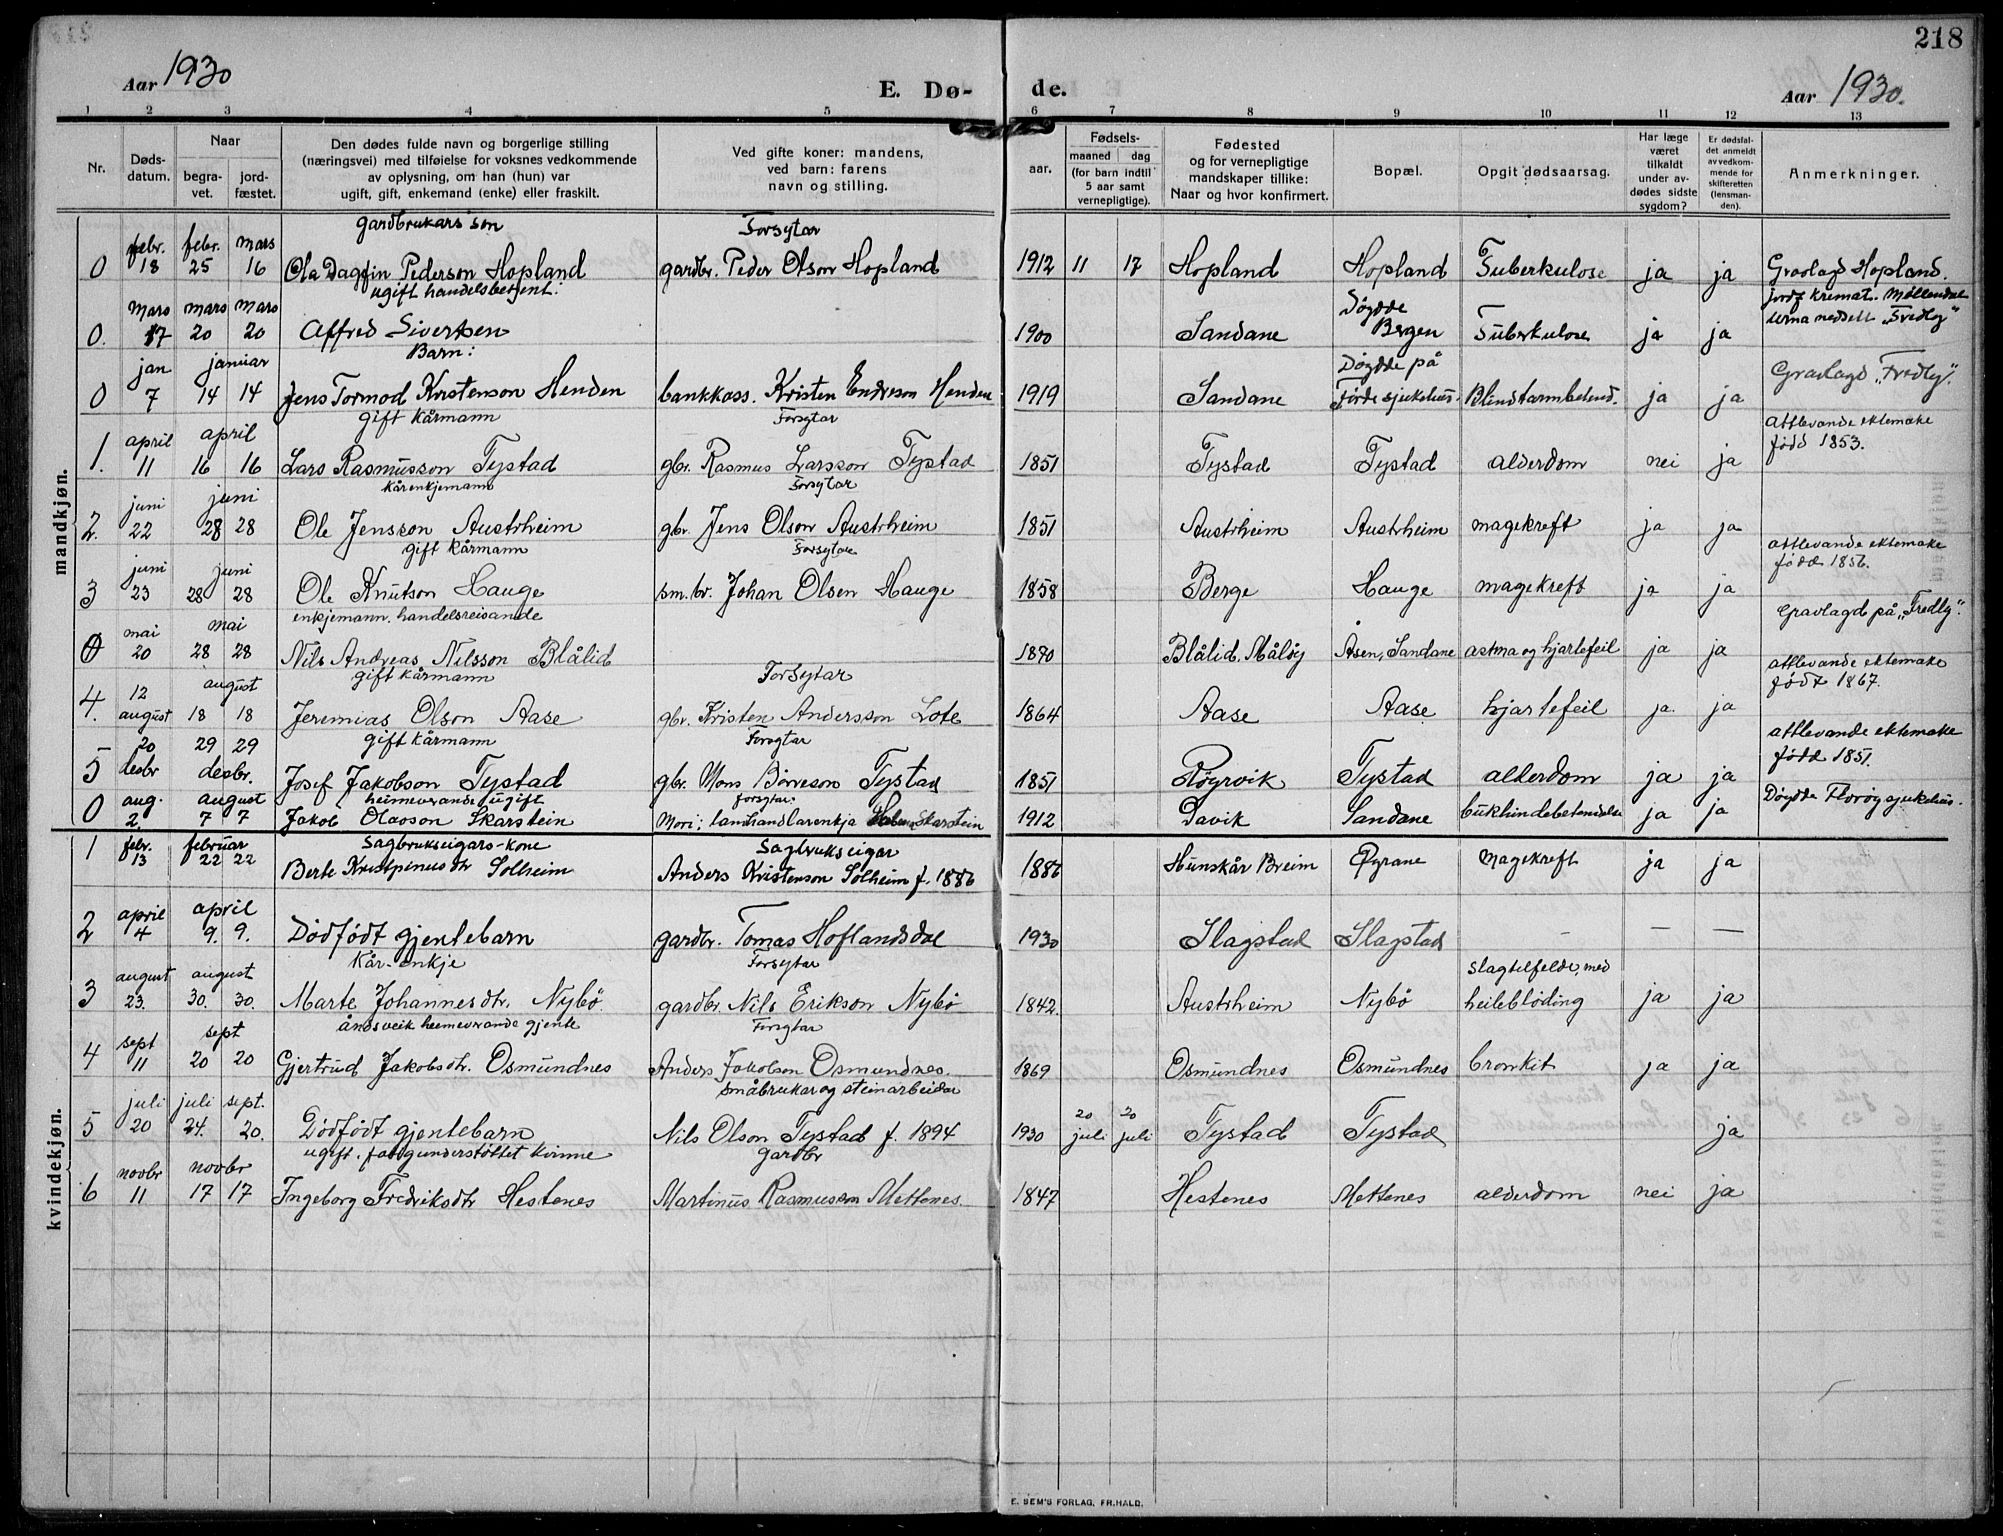 218
Aar 1930
E. Dø-
de.
Aar 1930.
1 2 3 4 5 6 7 8 9 10 11 12 13
Nr.
Døds-
datum.
Naar
begra-
vet.
jord-
fæstet.
Den dødes fulde navn og borgerlige stilling
(næringsvei) med tilføielse for voksnes vedkommende
av oplysning, om han (hun) var
ugift, gift, enkemand (enke) eller fraskilt.
Ved gifte koner: mandens,
ved barn: farens
navn og stilling.
aar.
Fødsels-
maaned dag
(for barn indtil
5 aar samt
vernepligtige).
Fødested
og for vernepligtige
mandskaper tillike:
Naar og hvor konfirmert.
Bopæl.
Opgit dødsaarsag.
Har læge
været
tilkaldt
under av-
dødes sidste
sygdom?
Er dødsfal-
det anmeldt
av vedkom-
mende for
skifteretten
(lensman-
den).
Anmerkninger.
mandkjøn.
gardbrukars son Forsytar
febr. febr. mars
0 18 25 16 Ola Dagfin Pederson Hopland gardbr. Peder Olson Hopland 1912 11 17 Hopland Hopland Tuberkulose ja ja Gravlagd Hopland.
ugift handelsbetjent: jordf kremat. Møllendal
mars mars mars Døydde urna nedsett "Fredly"
0. 17 20 20 Alfred Sivertsen 1900 Sandane Bergen Tuberkulose ja ja
Barn: Døydde på
jan januar Gravlagd "Fredly".
0 7 14 14 Jens Tormod Kristenson Henden bankkass. Kristen Endreson Henden 1919 Sandane Førde sjukehus. Blindtarmbetend. ja ja
gift kårmann Forsytar attlevande ektemake
april april født 1853.
1. 11 16 16 Lars Rasmusson Tystad gbr. Rasmus Larsson Tystad 1851 Tystad Tystad alderdom nei ja
kårenkjemann Forsytar
juni juni
2. 22 28 28 Ole Jensson Austrheim gbr. Jens Olson Austrheim 1851 Austrheim Austrheim magekreft ja ja
gift kårmann Forsytar attlevande ektemake
juni juni født 1856.
3 23 28 28 Ole Knutson Hauge sm.br. Johan Olsen Hauge 1858 Berge Hauge magekreft ja ja
enkjemann, handelsreisande gravlagd på "Fredly".
mai mai
0 20 28 28 Nils Andreas Nilsson Blålid Blålid, Måløy Åsen, Sandane astma og hjartefeil ja ja
gift kårmann Forsytar attlevande ektemake
12 august født 1867.
4. august 18 18 Jeremias Olson Aase gbr. Kristen Andersson Lote 1864 Aase Aase hjartefeil ja. ja
gift kårmann Forsytar attlevande ektemake
20 29 29 født 1851.
5 desbr desbr. Josef Jakobson Tystad gbr. Mons Børreson Tystad 1851 Røyrvik Tystad alderdom ja ja
heimeverande ugift forsytar. Døydde Florøy sjukehus.
aug. august
0 2. 7 7 Jakob Olavson Skarstein Mori; landhandlarenkja Skarstein 1912 Davik Sandane bukhindebetendelse ja ja
kvindekjøn.
Sagbrukseigars-kone Sagbrukseigar
febr. februar
1 13 22 22 Berte Kristpinusdtr Solheim Anders Kristenson Solheim f. 1886 1886 Hunskår Breim Øyrane Magekreft ja ja
april april
2 4 9. 9. Dødfødt gjentebarn gardbr. Tomas Hoflandsdal 1930 Slagstad Slagstad — — —
Kår-enkje Forsytar
august august slagtilfelde, med
3 23. 30. 30. Marte Johannesdtr. Nybø. gardbr. Nils Erikson Nybø 1842. Austrheim Nybø heilebløding ja ja
åndsveik heimeverande gjente Forsytar
sept sept
4 11 20 20 Gjertrud Jakobsdtr. Osmundnes Anders Jakobson Osmundnes. 1869 Osmundnes Osmundnes bronkit ja ja
småbrukar og steinarbeidar
juli juli sept. 20 20
5 20 24. 20. Dødfødt gjentebarn Nils Olson Tystad f. 1894 1930 juli juli Tystad Tystad ja
ugift. understøttet kvinne gardbr
novbr novbr
6 11 17 17 Ingeborg Fredriksdtr Hestenes Martinus Rasmusson Mettenes. 1847 Hestenes Mettenes alderdom nei ja
E. SEM'S FORLAG, FR.HALD.